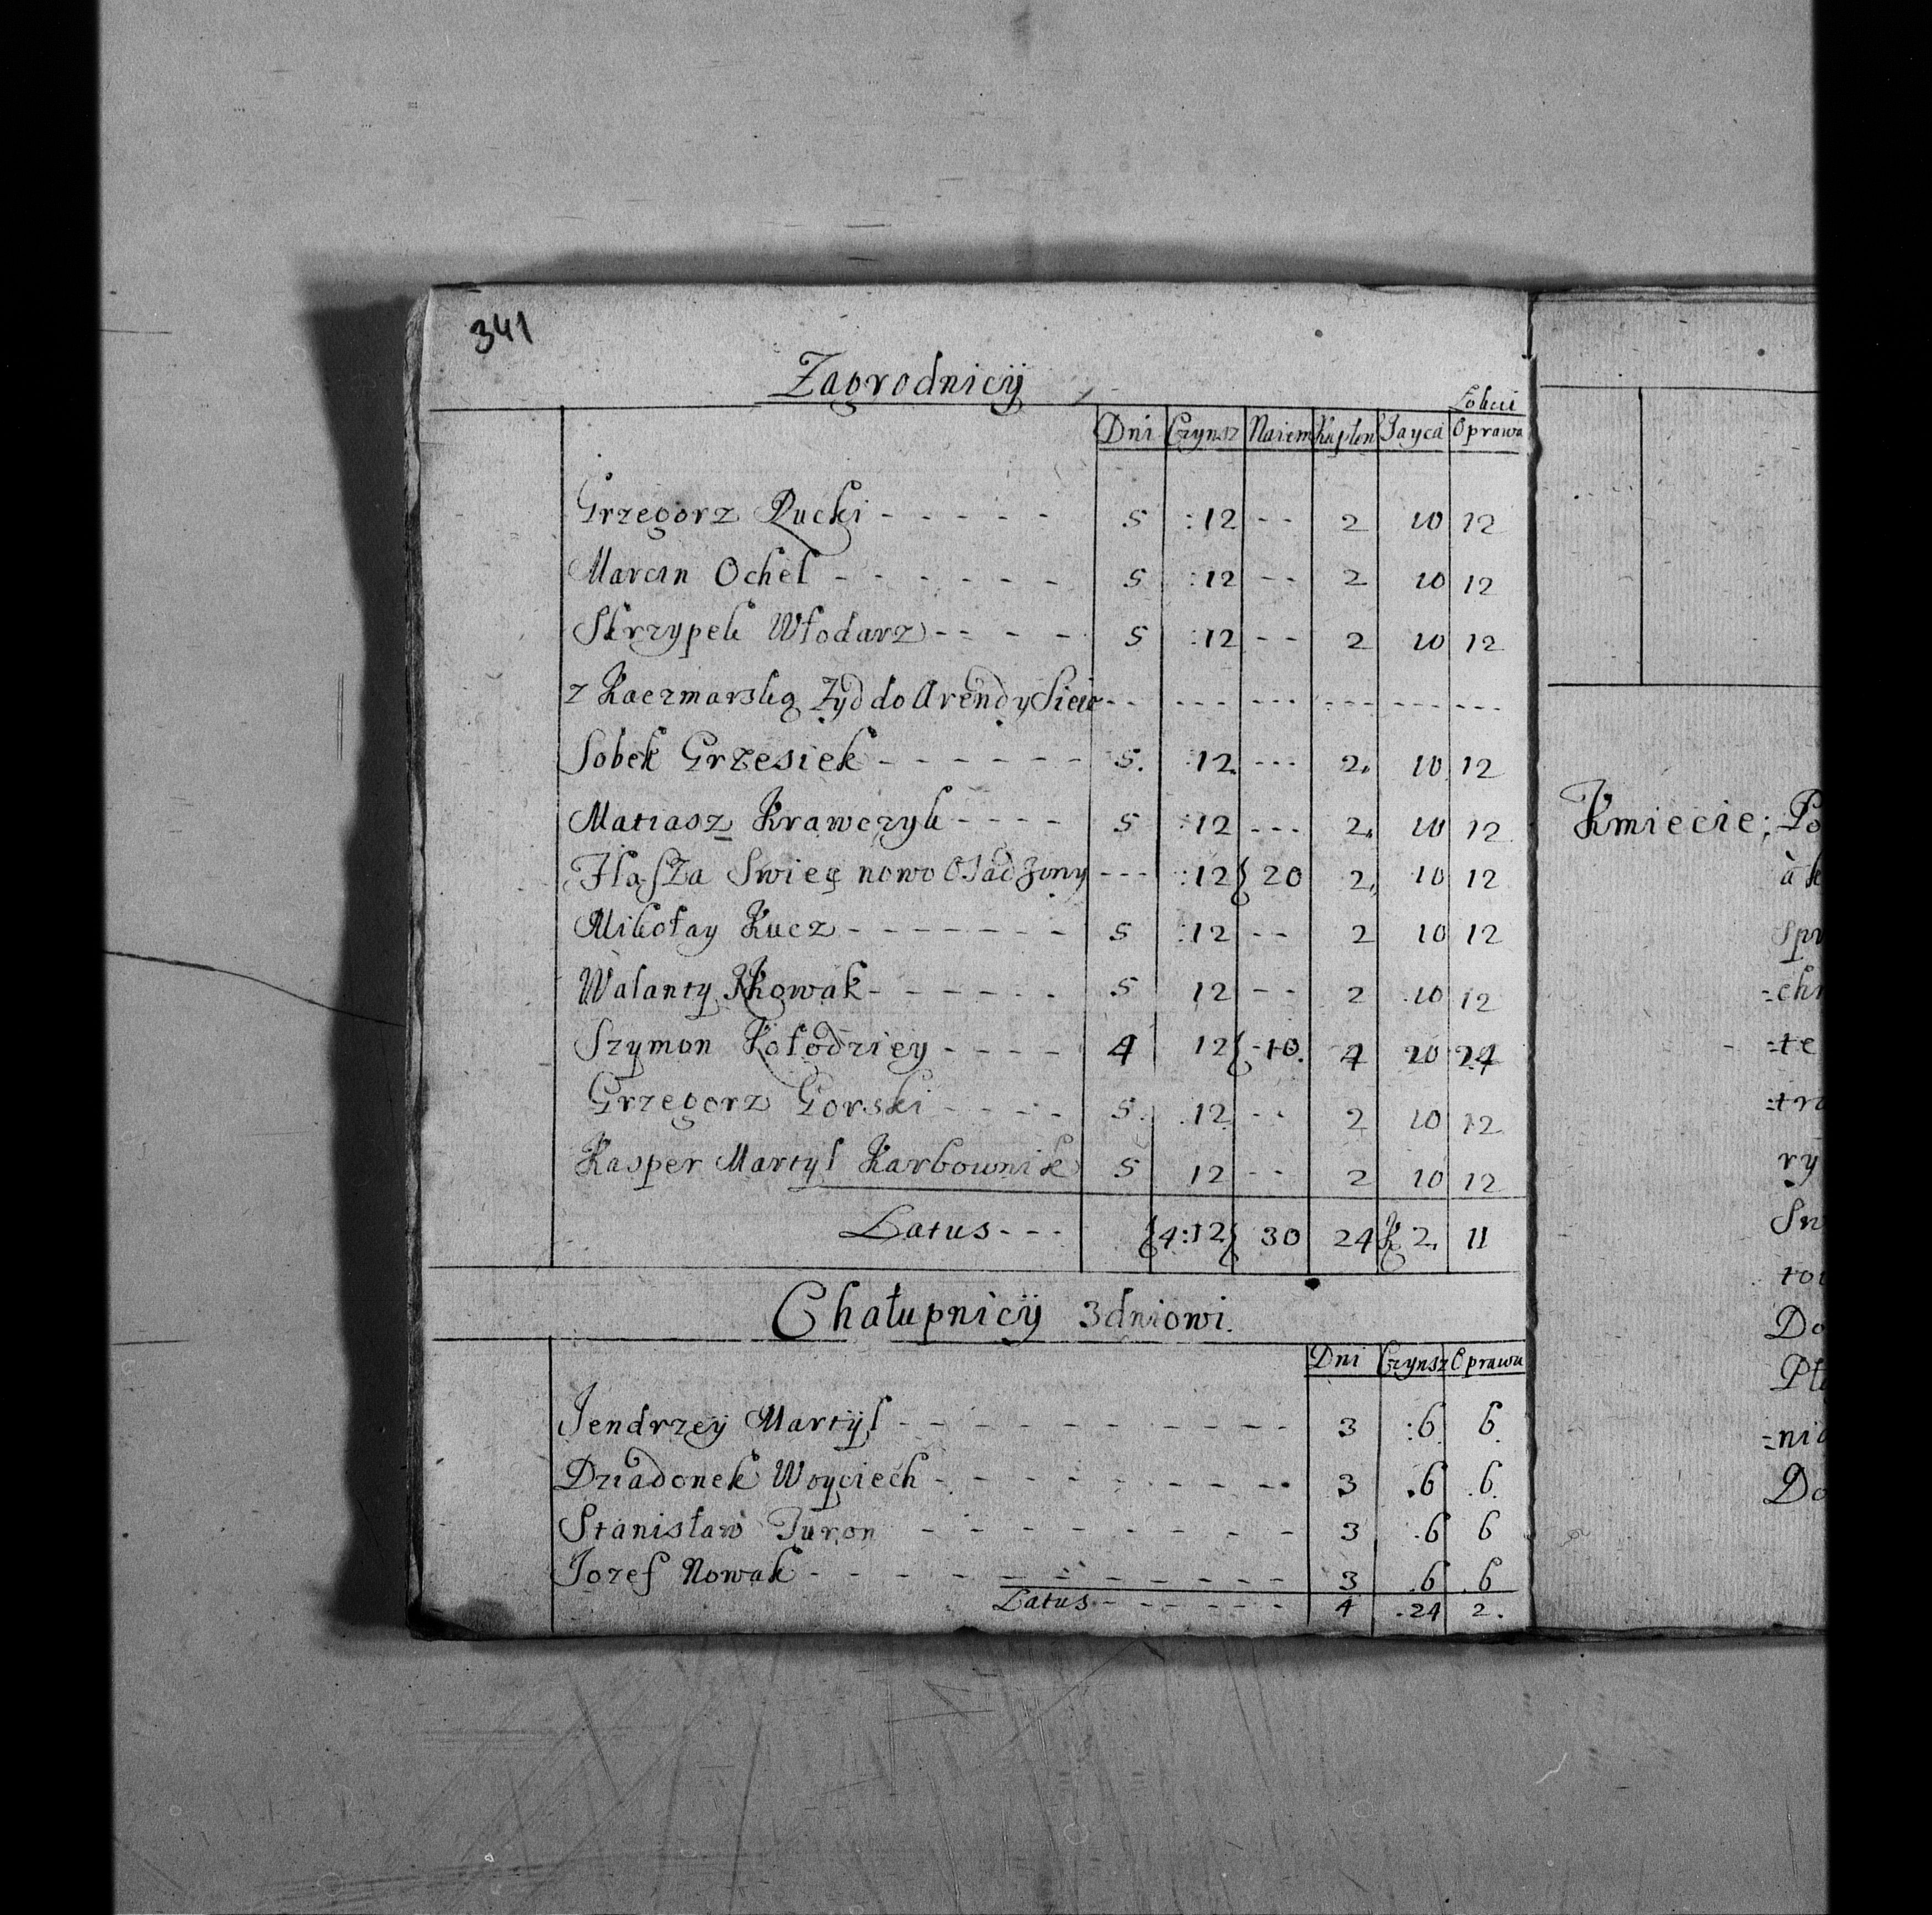 341
Zagrodnicÿ
Łokci
Dni Czynsz Naiem Kapłon Jayca Oprawa
Grzegorz Rucki - - - - - 5 :12 - - 2 10 12
Marcin Ochel - - - - - - 5 :12 - - 2 10 12
Skrzypek Włodarz - - - - 5 :12 - - 2 10 12
z Kaczmarską Zyd do Arendy - - - - - - - - - - - - - - - - -
Sobek Grzesiek - - - - - - 5. :12. - - - 2. 10 12
Matiasz Krawczyk - - - - 5 :12 - - - 2. 10 12
nowo Osadzony - - - :12 20 2. 10 12
Mikołay Kucz - - - - - - - 5 :12 - - 2 10 12
Walanty Nowak - - - - - - 5 12 - - 2 10 12
Szymon Kołodziey - - - - 4 12 -10. 4 20 24
Grzegorz Gorski - - - - 5. 12 - - 2 10 12
Kasper Martyl Karbownik 5 12 - - 2 10 12
Latus - - - 4:12 30 24 K 2. 11
Chałupnicÿ 3dniowi.
Dni Czynsz Oprawa
Jendrzey Martÿl - - - - - - - - - - 3 :6 6.
Dziadonek Woyciech - - - - - - - - - 3 .6 .6.
Stanisław Turon - - - - - - - - 3 .6 6
Jozef Nowak - - - - - - - - - - - 3 .6 .6
Latus - - - - - - - 4 .24 2.
Kmiecie; Po
à
Spr
=chr
=te
=trz
ry
Sw
tou
Do
=nia
Do